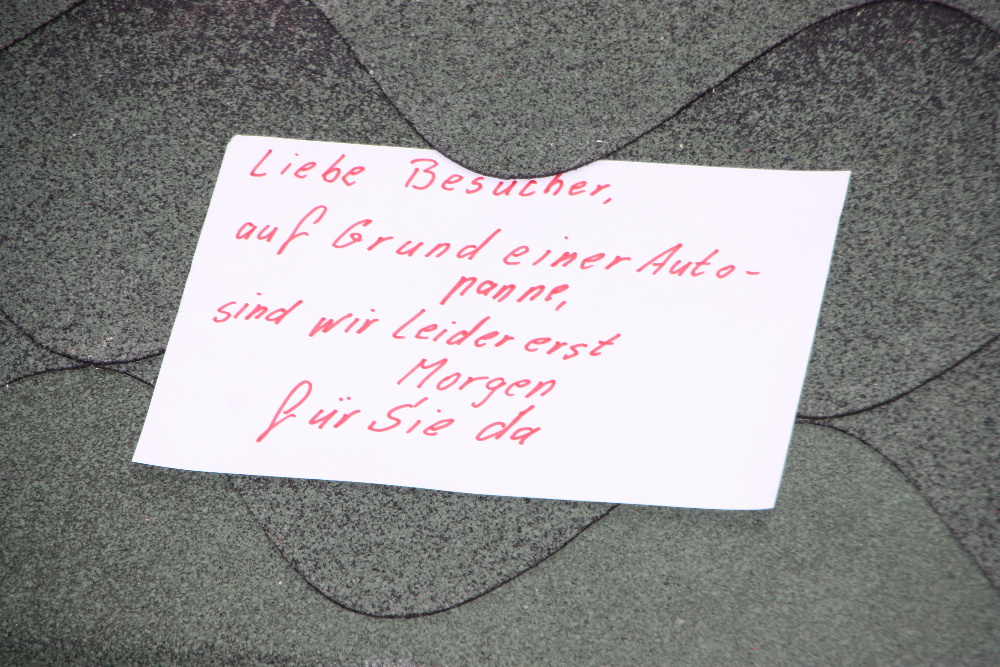 Liebe Besucher,
auf Grund einer Auto-
panne,
sind wir Leider erst
Morgen
für Sie da